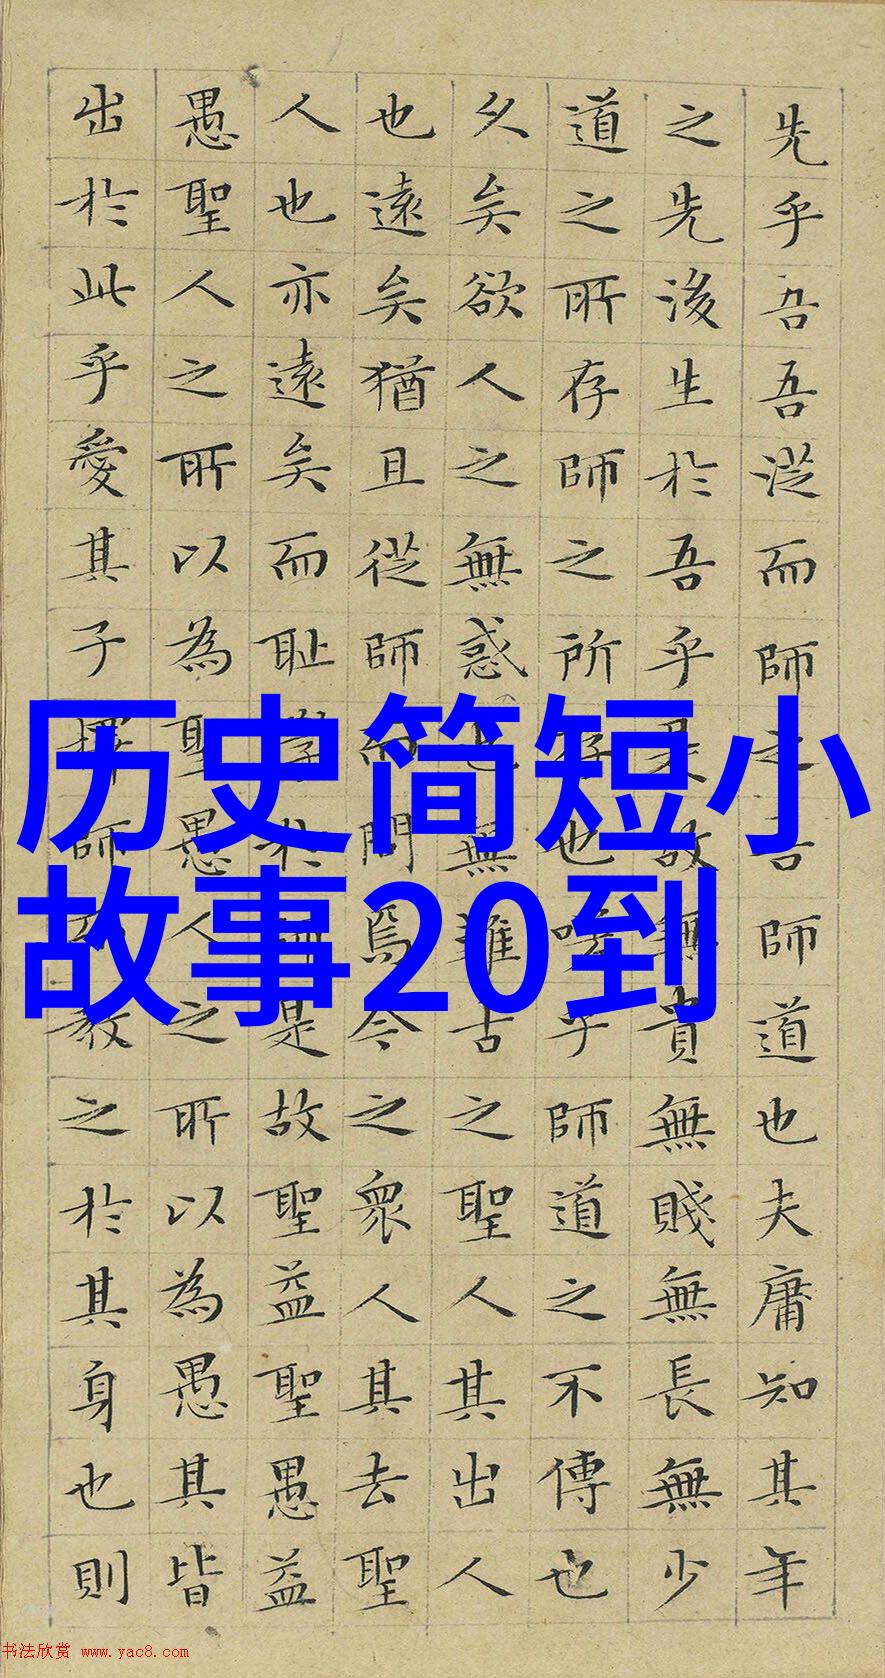 历史简短小
故事20到
先乎吾吾從而師之吾師道也夫庸知其年
之先後生於吾乎是故無貴無賤無長無少
道之所存師之所存也嗟乎師道之不傳也
久矣欲人之無惑也無難古之聖人其出人
也遠矣猶且從師而問焉今之衆人其去聖
人也亦遠矣而耻學於師是故聖益聖愚益
愚聖人之所以為聖愚人之所以為愚其皆
出於此乎愛其子擇師而教之於其身也則
书法欣赏 www.yac8.com